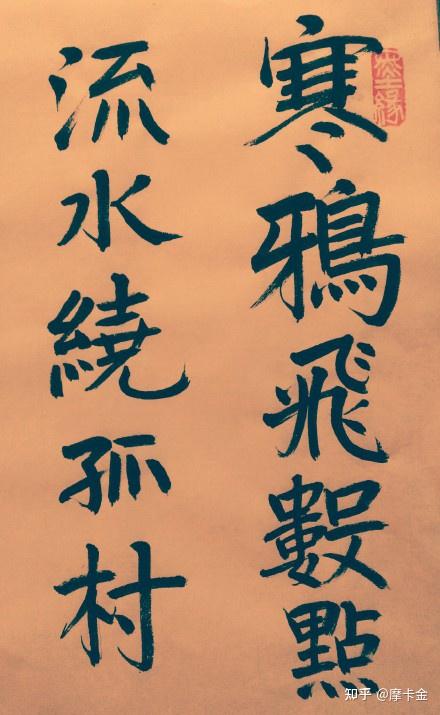 寒鴉飛數點
流水繞孤村
知乎 @摩卡金